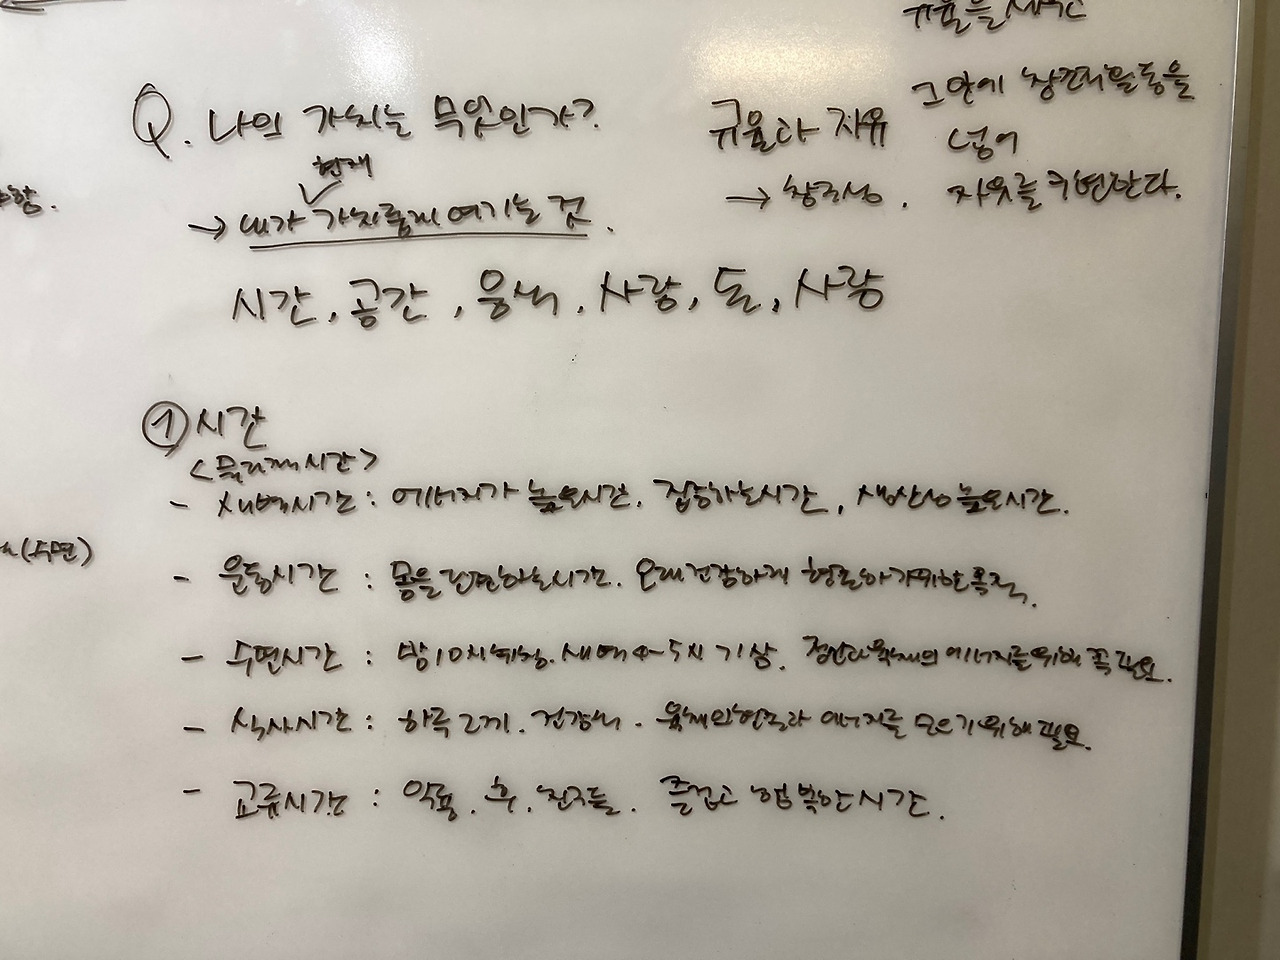 규율을 세우고
Q. 나의 가치는 무엇인가?
규율과 자유
그 안에 창조적 활동을
넣어
현재
→ 내가 가치롭게 여기는 것.
→ 창조성.
자유를 구현한다.
시간, 공간, 음식, 사랑, 돈, 사랑
① 시간
- 새벽시간 : 에너지가 높은시간. 집중하는시간, 생산성 높은시간.
(수면)
- 운동시간 : 몸을 단련하는시간. 오래 건강하게
- 수면시간 : 밤 10시 취침. 새벽 4~5시 기상. 정신과 육체의 에너지를 위해 꼭 필요.
- 식사시간 : 하루 2끼. 건강식. 육체의 에너지를 위해 필요.
- 교류시간 : 친구들. 즐겁고 행복한 시간.